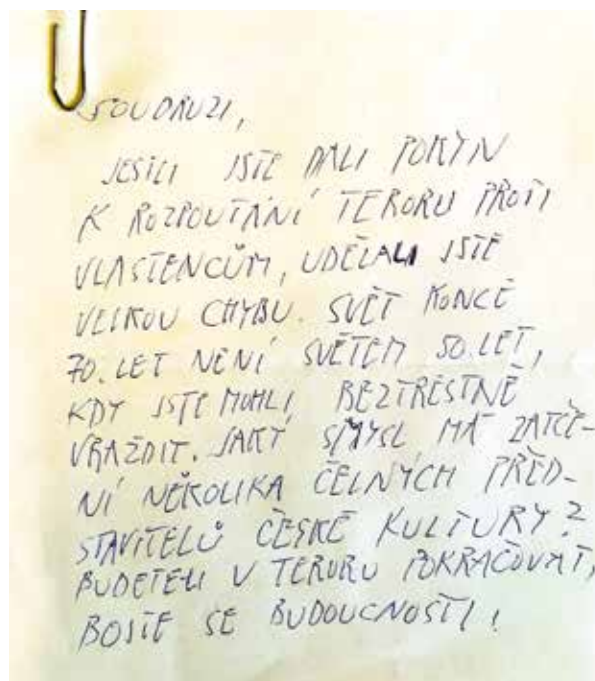 SOUDRUZI,
JESTLI JSTE DALI POKYN
K ROZPOUTÁNÍ TERORU PROTI
VLASTENCŮM, UDĚLALI JSTE
VELKOU CHYBU. SVĚT KONCE
70. LET NENÍ SVĚTEM 50. LET,
KDY JSTE MOHLI BEZTRESTNĚ
VRAŽDIT. JAKÝ SMYSL MÁ ZATČE-
NÍ NĚKOLIKA ČELNÝCH PŘED-
STAVITELŮ ČESKÉ KULTURY?
BUDETELI V TERORU POKRAČOVAT,
BOJTE SE BUDOUCNOSTI!